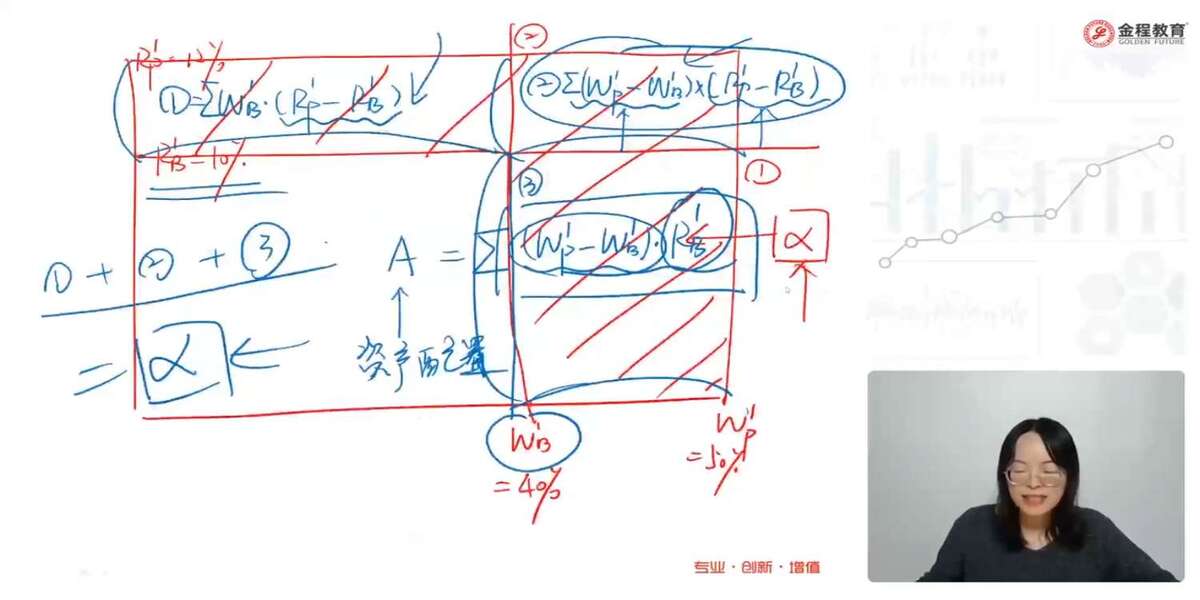 金程教育
GOLDEN FUTURE
②
R'p = 12%
① = Σ W'B · (R'p - R'B)
② Σ(W'p - W'B) × (R'p - R'B)
R'B = 10%
③
①
A = Σ (W'p - W'B) · R'B
α
① + ② + ③
= α
资产配置
W'B
= 40%
W'p
= 50%
专业·创新·增值